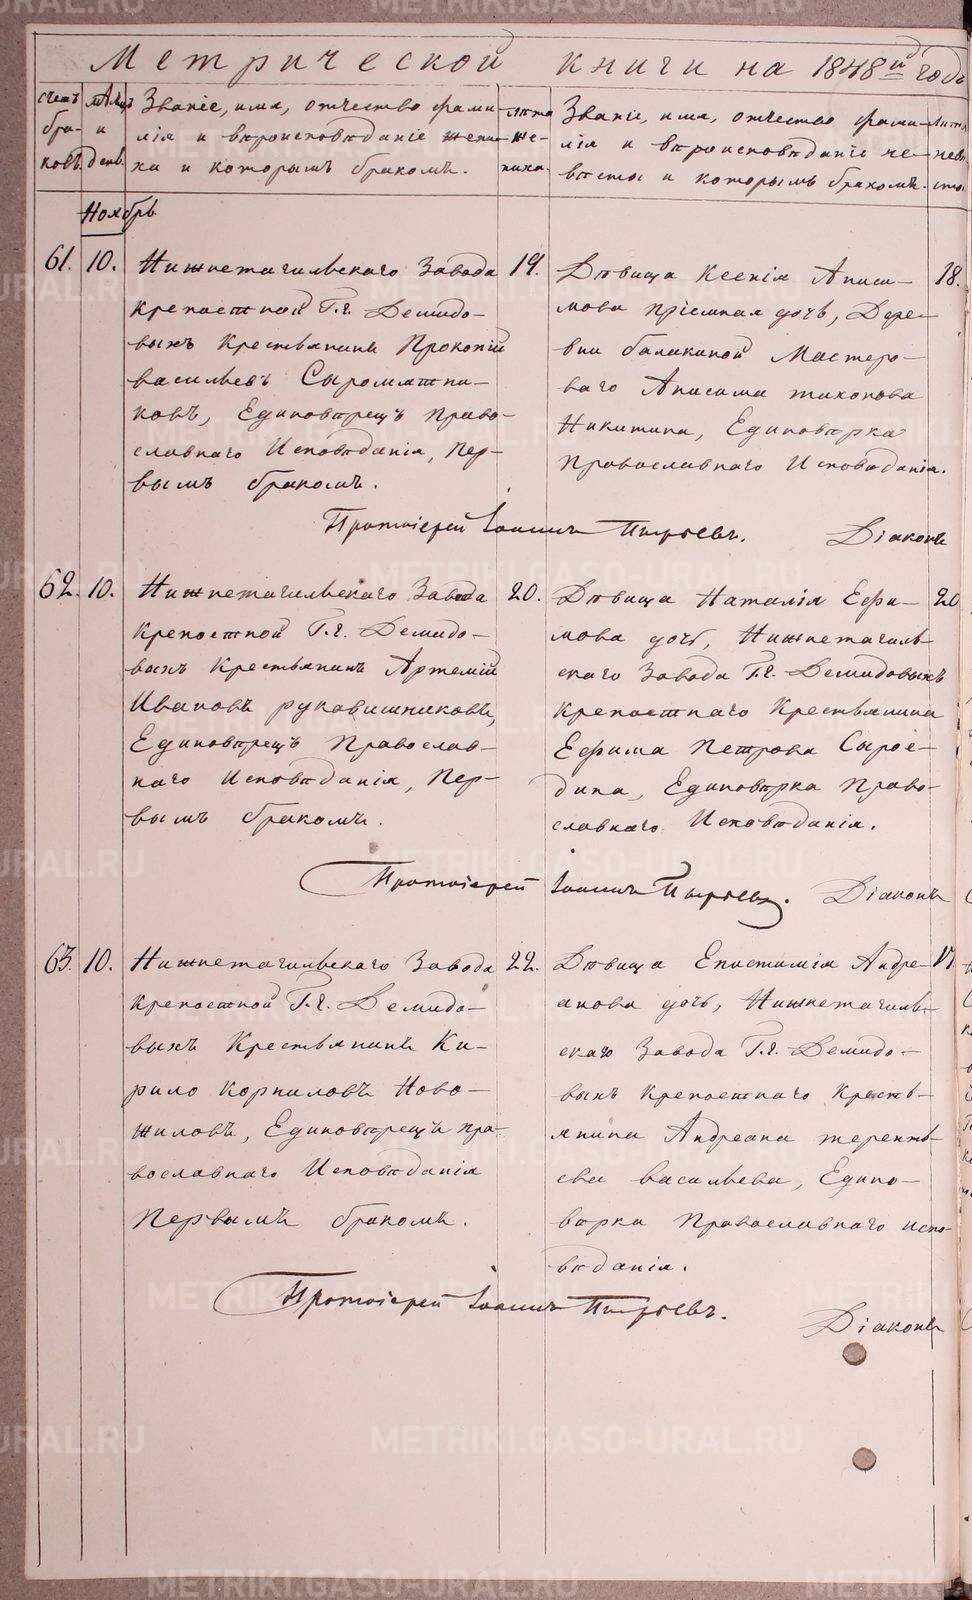 Метрической книги на 1848й годъ
счетъ браковъ.
Мсцъ и день.
Званіе, имя, отчество фами-
лія и вѣроисповѣданіе жени-
ха и которымъ бракомъ.
лѣта
же-
ниха.
Званіе, имя, отчество фами-
лія и вѣроисповѣданіе не-
вѣсты и которымъ бракомъ.
лѣта
невѣ
сты.
Ноябрь
61. 10.
Нижнетагильскаго Завода
крепостной Г.г. Демидо-
выхъ Крестьянинъ Прокопій
васильевъ Сыромятни-
ковъ, Единовѣрецъ право-
славнаго Исповѣданія, Пер-
вымъ бракомъ.
19.
Дѣвица Ксенія Аниси-
мова пріемная дочь, Дере-
вни балакиной Мастеро-
ваго Анисима тихонова
Никитина, Единовѣрка
православнаго Исповѣданія.
18.
Протоіерей Іоаннъ Пырьевъ.
Діаконъ
62. 10.
Нижнетагильскаго Завода
крепостной Г.г. Демидо-
выхъ Крестьянинъ Артемій
Ивановъ рукавишниковъ,
Единовѣрецъ Православ-
наго Исповѣданія, Пер-
вымъ бракомъ.
20.
Дѣвица Наталія Ефи-
мова дочь, Нижнетагиль-
скаго Завода Г.г. Демидовыхъ
крепостнаго Крестьянина
Ефима Петрова Сырое-
дина, Единовѣрка Право-
славнаго Исповѣданія.
20
Протоіерей Іоаннъ Пырьевъ.
Діаконъ
63. 10.
Нижнетагильскаго Завода
крепостной Г.г. Демидо-
выхъ Крестьянинъ Ки-
рило корниловъ Ново-
жиловъ, Единовѣрецъ пра-
вославнаго Исповѣданія
Первымъ бракомъ.
22.
Дѣвица Епистимія Андре-
анова дочь, Нижнетагиль-
скаго Завода Г.г. Демидо-
выхъ Крепостнаго Кресть-
янина Андреана теренть-
ева васильева, Едино-
вѣрка Православнаго испо-
вѣданія.
17.
Протоіерей Іоаннъ Пырьевъ.
Діаконъ
METRIKI.GASO-URAL.RU